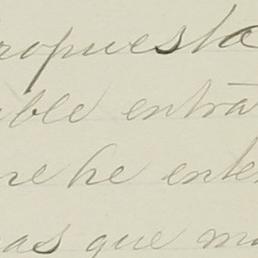 ropuesta
able entra
me he ente
mas que ma